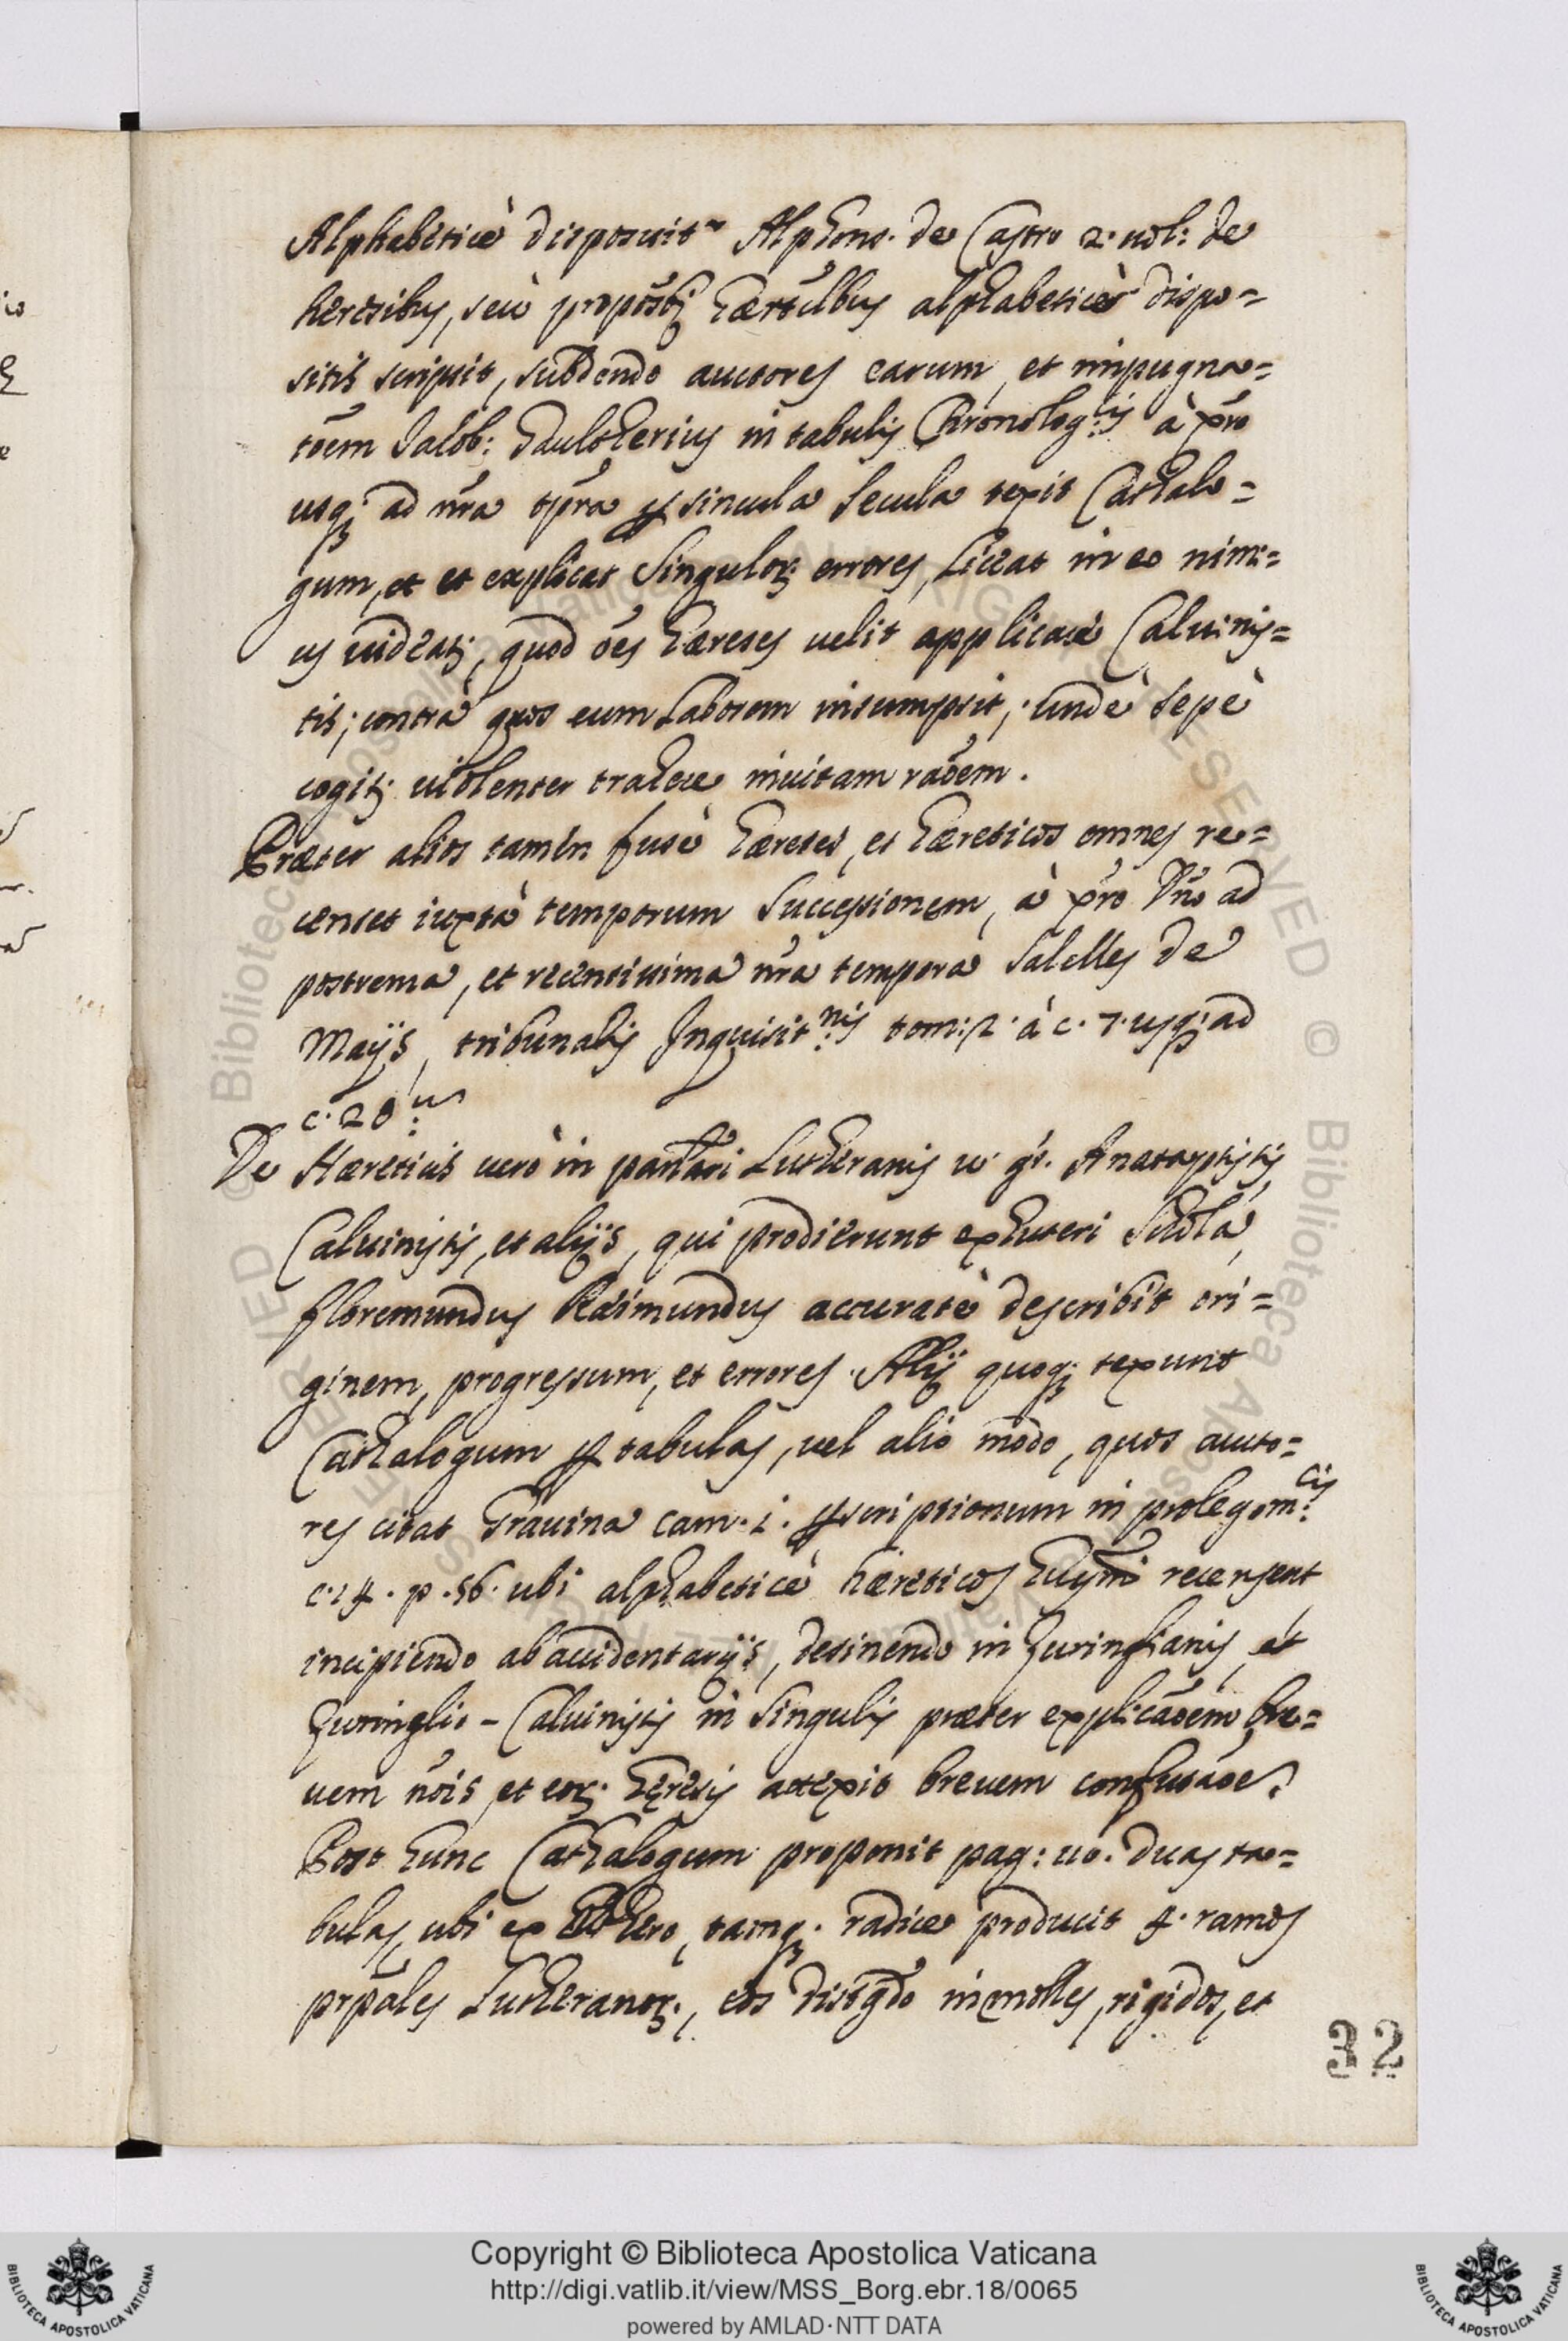 Alphabeticè disposuit Alphons. de Castro 2. uol: de
heresibus, seù alphabeticè dispo=
sitis scripsit, subdendo auctores earum, et impugna=
tõem Jacob: Gaultherius in tabulis Chronolog:cis à xp̃o
usq; ad nr̃a tp̃ra ꝑ sincula secula texit Cathalo=
gum, et et explicat singuloꝝ errores, Liceat in eo nimi=
us uideatꝫ, quod oẽs hæreses uelit applicarè Caluinis=
tis; contrà quos eum laborem insumpsit, undè sepè
cogitꝫ uiolenter trahere inuitam raõem.
Præter alios tamèn fusè hæreses, et hæreticos omnes re=
censet iuxtà temporum successionem, à xp̃o Dño ad
postrema, et recentissima nr̃a tempora Salelles de
Maijs, tribunalis Inquisit:nis tom: 2. à c. 7. usq; ad
c. 20:
De Hæreticis uerò in Lutheranis u. gr. Anabaptistis,
Caluinistis, et alijs, qui prodierunt ex Luteri Schola,
floremundus Raimundus accuratè describit ori=
ginem, progressum, et errores. Alij quoq; texunt
Cathalogum ꝑ tabulas, uel alio modo, quos aucto=
res citat Grauina ꝑscriptionum in prolegom:cis
c. 14. p. 56. ubi alphabeticè hæreticos recensent,
incipiendo ab accidentarijs, desinendo in Zuinglianis, et
Zuinglio-Caluinistis in singulis præter explicaõem bre=
uem nõis, et eoꝝ. hęresis attexit breuem confutaõe
Post hunc Cathalogum proponit pag: 110. duas ta=
bulas, ubi ex Luthero, tamq. radice producit 4. ramos
prp̃ales Lutheranoꝝ., eos distg̃do in molles, rigidos, et
32
Copyright © Biblioteca Apostolica Vaticana
http://digi.vatlib.it/view/MSS_Borg.ebr.18/0065
powered by AMLAD·NTT DATA
BIBLIOTECA APOSTOLICA VATICANA
BIBLIOTECA APOSTOLICA VATICANA